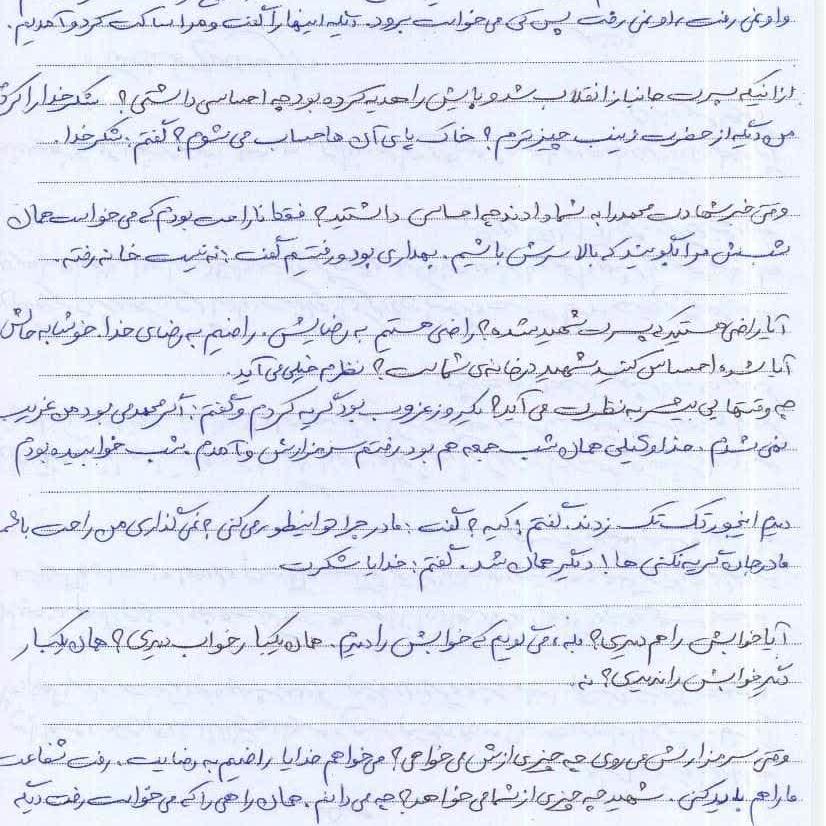 واو نمی رفت، او نمی رفت پس کی می خواست برود. دیگه اینها را گفت و مرا ساکت کرد و آمدیم.
از اینکه پسرت جانباز انقلاب شد و پایش را هدیه کرده بود چه احساسی داشتی؟ شکر خدا را کردم
من دیگه از حضرت زینب چیزترم؟ خاک پای آن ها حساب می شوم؟ گفتم: شکر خدا.
وقتی خبر شهادت محمد را به شما دادند چه احساسی داشتید؟ فقط ناراحت بودم که می خواست همان
شبش مرا بگویند که بالا سرش باشم. بهداری بود و رفتم گفت: نه نیست خانه رفته.
آیا راضی هستید که پسرت شهید شده؟ راضی هستیم به رضایش. راضیم به رضای خدا. خوشا به حالش
آیا شده احساس کنید شهید در خانه ی شماست؟ نظرم خیلی می آید.
چه وقتهایی بیشتر به نظرت می آید؟ یکروز غروب بود گریه کردم و گفتم: اگر محمد می بود من غریب
نمی شدم. خدا وکیلی همان شب جمعه هم بود رفتم سر مزارش و آمدم. شب خوابیده بودم
دیدم اینجور تک تک زدند. گفتم کیه؟ گفت: مادر چرا اینطور می کنی؟ نمی گذاری من راحت باشم
مادر جان گریه نکنی ها! دیگر همان شد. گفتم: خدایا شکرت
آیا خوابش را هم دیدی؟ بله، می گویم که خوابش را دیدم. همان یکبار خواب دیدی؟ همان یکبار
دیگر خوابش را ندیدی؟ نه.
وقتی سر مزارش می روی چه چیزی ازش می خواهی؟ می خواهم خدایا راضیم به رضایت. رفت شفاعت
ما را هم باید کنی. شهید چه چیزی از شما می خواهد؟ چه می دانم. همان راهی را که می خواست رفت دیگه